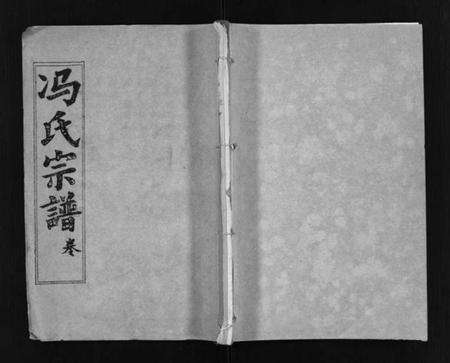 冯氏宗譜卷